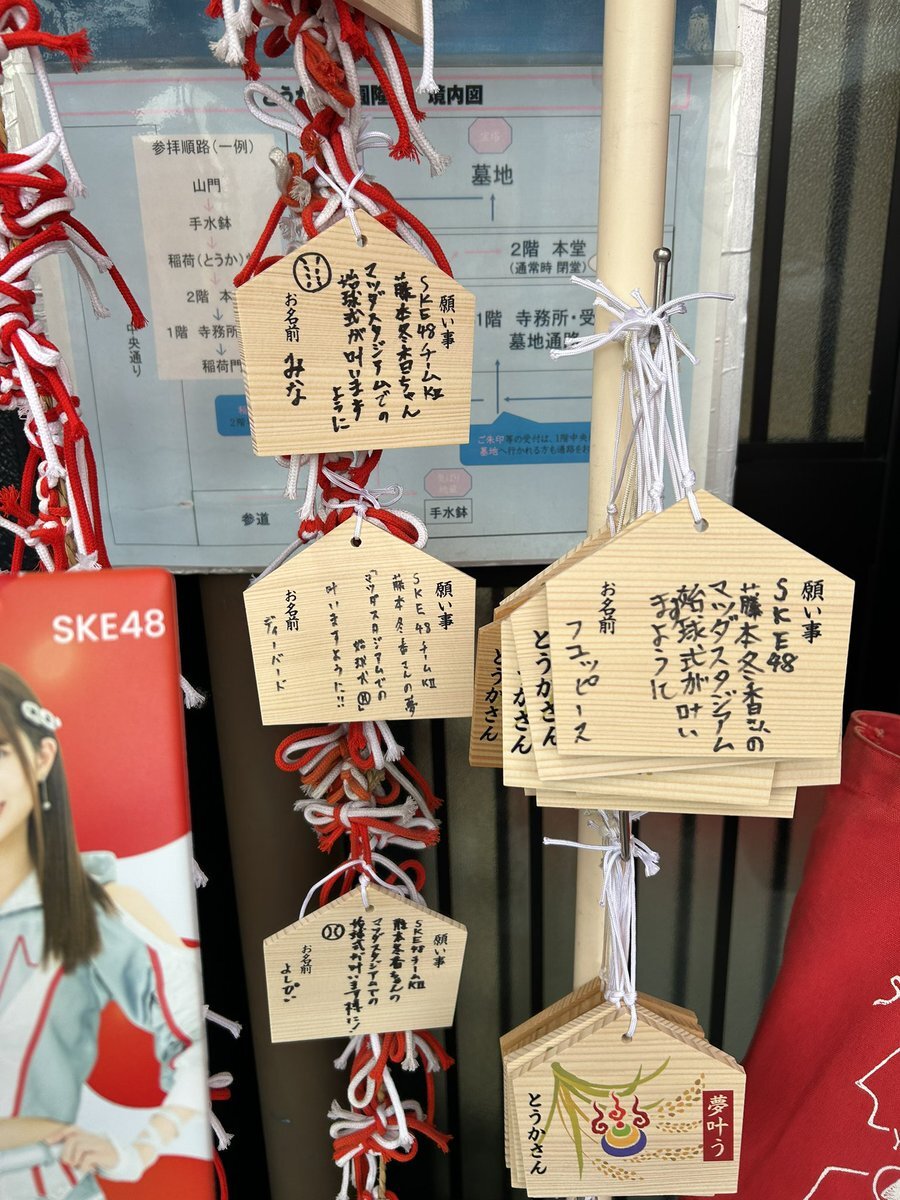 境内図
参拝順路(一例)
山門
↓
手水鉢
↓
稲荷(とうか)
↓
2階 本
↓
1階 寺務所
↓
稲荷門
中央通り
墓地
2階 本堂
(通常時 閉堂)
1階 寺務所・受
墓地通路
ご朱印等の受付は、1階中央
墓地へ行かれる方も通路をお
手水鉢
参道
願い事
SKE48チームKⅡ
藤本冬香ちゃん
マツダスタジアムでの
始球式が叶います
ように
お名前
みな
願い事
SKE48チームKⅡ
藤本冬香さんの夢
「マツダスタジアムでの
始球式」
叶いますように!!
お名前
ディーバード
願い事
SKE48
藤本冬香さんの
マツダスタジアム
始球式が叶い
ますように
お名前
フユッピース
とうかさん
とうかさん
とうかさん
願い事
SKE48チームKⅡ
藤本冬香ちゃんの
マツダスタジアムでの
始球式が叶います様に!
お名前
よしぴい
夢叶う
とうかさん
SKE48